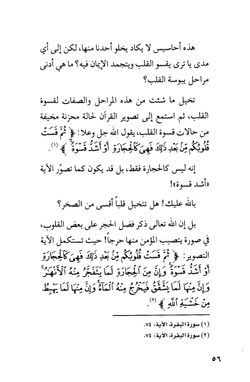 هذه أحاسيس لا يكاد يخلو أحدنا منها، لكن إلى أي
مدى يا ترى يقسو القلب ويتجمد الإيمان فيه؟ ما هي أدنى
مراحل يبوسة القلب؟
تخيل ما شئت من هذه المراحل والصفات لقسوة
القلب، ثم استمع إلى تصوير القرآن لحالة محزنة مخيفة
من حالات قسوة القلب، يقول الله جل وعلا: ﴿ ثُمَّ قَسَتْ
قُلُوبُكُم مِّنْ بَعْدِ ذَٰلِكَ فَهِىَ كَالْحِجَارَةِ أَوْ أَشَدُّ قَسْوَةً ﴾ (١).
إنه ليس كالحجارة فقط، بل قد يكون كما تصوّر الآية
«أشد قسوة»!
بالله عليك! هل تتخيل قلباً أقسى من الصخر؟
بل إن الله تعالى ذكر فضل الحجر على بعض القلوب،
في صورة يتصبب المؤمن منها حرجاً! حيث تستكمل الآية
التصوير: ﴿ ثُمَّ قَسَتْ قُلُوبُكُم مِّنْ بَعْدِ ذَٰلِكَ فَهِىَ كَالْحِجَارَةِ
أَوْ أَشَدُّ قَسْوَةً وَإِنَّ مِنَ الْحِجَارَةِ لَمَا يَتَفَجَّرُ مِنْهُ الْأَنْهَارُ
وَإِنَّ مِنْهَا لَمَا يَشَّقَّقُ فَيَخْرُجُ مِنْهُ الْمَاءُ وَإِنَّ مِنْهَا لَمَا يَهْبِطُ
مِنْ خَشْيَةِ اللَّهِ ﴾ (٢).
(١) سورة البقرة، الآية: ٧٤.
(٢) سورة البقرة، الآية: ٧٤.
٥٦